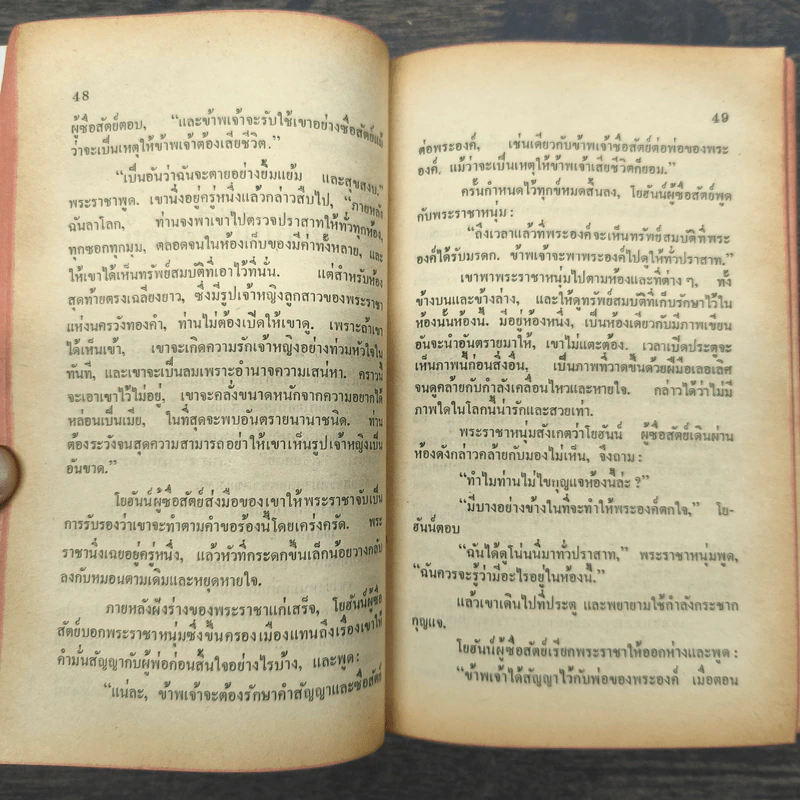 48
ผู้ซื่อสัตย์ตอบ, “และข้าพเจ้าจะรับใช้เขาอย่างซื่อสัตย์แม้
ว่าจะเป็นเหตุให้ข้าพเจ้าต้องเสียชีวิต.”
“เป็นอันว่าฉันจะตายอย่างยิ้มแย้ม และสุขสงบ.”
พระราชาพูด. เขานิ่งอยู่ครู่หนึ่งแล้วกล่าวสืบไป, “ภายหลัง
ฉันลาโลก, ท่านจงพาเขาไปตรวจปราสาทให้ทั่วทุกห้อง,
ทุกซอกทุกมุม, ตลอดจนในห้องเก็บของมีค่าทั้งหลาย, และ
ให้เขาได้เห็นทรัพย์สมบัติที่เอาไว้ที่นั่น. แต่สำหรับห้อง
สุดท้ายตรงเฉลียงยาว, ซึ่งมีรูปเจ้าหญิงลูกสาวของพระราชา
แห่งนครวังทองคำ, ท่านไม่ต้องเปิดให้เขาดู. เพราะถ้าเขา
ได้เห็นเข้า, เขาจะเกิดความรักเจ้าหญิงอย่างท่วมหัวใจใน
ทันที, และเขาจะเป็นลมเพราะอำนาจความเสน่หา. คราวนี้
จะเอาเขาไว้ไม่อยู่, เขาจะคลั่งขนาดหนักจากความอยากได้
หล่อนเป็นเมีย, ในที่สุดจะพบอันตรายนานาชนิด. ท่าน
ต้องระวังจนสุดความสามารถอย่าให้เขาเห็นรูปเจ้าหญิงเป็น
อันขาด.”
โยฮันน์ผู้ซื่อสัตย์ส่งมือของเขาให้พระราชาจับเป็น
การรับรองว่าเขาจะทำตามคำขอร้องนี้โดยเคร่งครัด. พระ
ราชานิ่งเฉยอยู่ครู่หนึ่ง, แล้วหัวที่กระดกขึ้นเล็กน้อยวางกลับ
ลงกับหมอนตามเดิมและหยุดหายใจ.
ภายหลังฝังร่างของพระราชาแก่เสร็จ, โยฮันน์ผู้ซื่อ
สัตย์บอกพระราชาหนุ่มซึ่งขึ้นครองเมืองแทนถึงเรื่องเขาให้
คำมั่นสัญญากับผู้พ่อก่อนสิ้นใจอย่างไรบ้าง, และพูด:
“แน่ละ, ข้าพเจ้าจะต้องรักษาคำสัญญาและซื่อสัตย์
49
ต่อพระองค์, เช่นเดียวกับข้าพเจ้าซื่อสัตย์ต่อพ่อของพระ
องค์. แม้ว่าจะเป็นเหตุให้ข้าพเจ้าเสียชีวิตก็ยอม.”
ครั้นกำหนดไว้ทุกข์หมดสิ้นลง, โยฮันน์ผู้ซื่อสัตย์พูด
กับพระราชาหนุ่ม:
“ถึงเวลาแล้วที่พระองค์จะเห็นทรัพย์สมบัติที่พระ
องค์ได้รับมรดก. ข้าพเจ้าจะพาพระองค์ไปดูให้ทั่วปราสาท.”
เขาพาพระราชาหนุ่มไปตามห้องและที่ต่าง ๆ, ทั้ง
ข้างบนและข้างล่าง, และให้ดูทรัพย์สมบัติที่เก็บรักษาไว้ใน
ห้องนั้นห้องนี้. มีอยู่ห้องหนึ่ง, เป็นห้องเดียวกับมีภาพเขียน
อันจะนำอันตรายมาให้, เขาไม่แตะต้อง. เวลาเปิดประตูจะ
เห็นภาพนี้ก่อนสิ่งอื่น, เป็นภาพที่วาดขึ้นด้วยฝีมือเลอเลิศ
จนดูคล้ายกับกำลังเคลื่อนไหวและหายใจ. กล่าวได้ว่าไม่มี
ภาพใดในโลกนี้น่ารักและสวยเท่า.
พระราชาหนุ่มสังเกตว่าโยฮันน์ ผู้ซื่อสัตย์เดินผ่าน
ห้องดังกล่าวคล้ายกับมองไม่เห็น, จึงถาม:
“ทำไมท่านไม่ไขกุญแจห้องนี้ล่ะ ?”
“มีบางอย่างข้างในที่จะทำให้พระองค์ตกใจ,” โย-
ฮันน์ตอบ
“ฉันได้ดูโน่นนี่มาทั่วปราสาท,” พระราชาหนุ่มพูด,
“ฉันควรจะรู้ว่ามีอะไรอยู่ในห้องนี้.”
แล้วเขาเดินไปที่ประตู และพยายามใช้กำลังกระชาก
กุญแจ.
โยฮันน์ผู้ซื่อสัตย์เรียกพระราชาให้ออกห่างและพูด:
“ข้าพเจ้าได้สัญญาไว้กับพ่อของพระองค์ เมื่อตอน